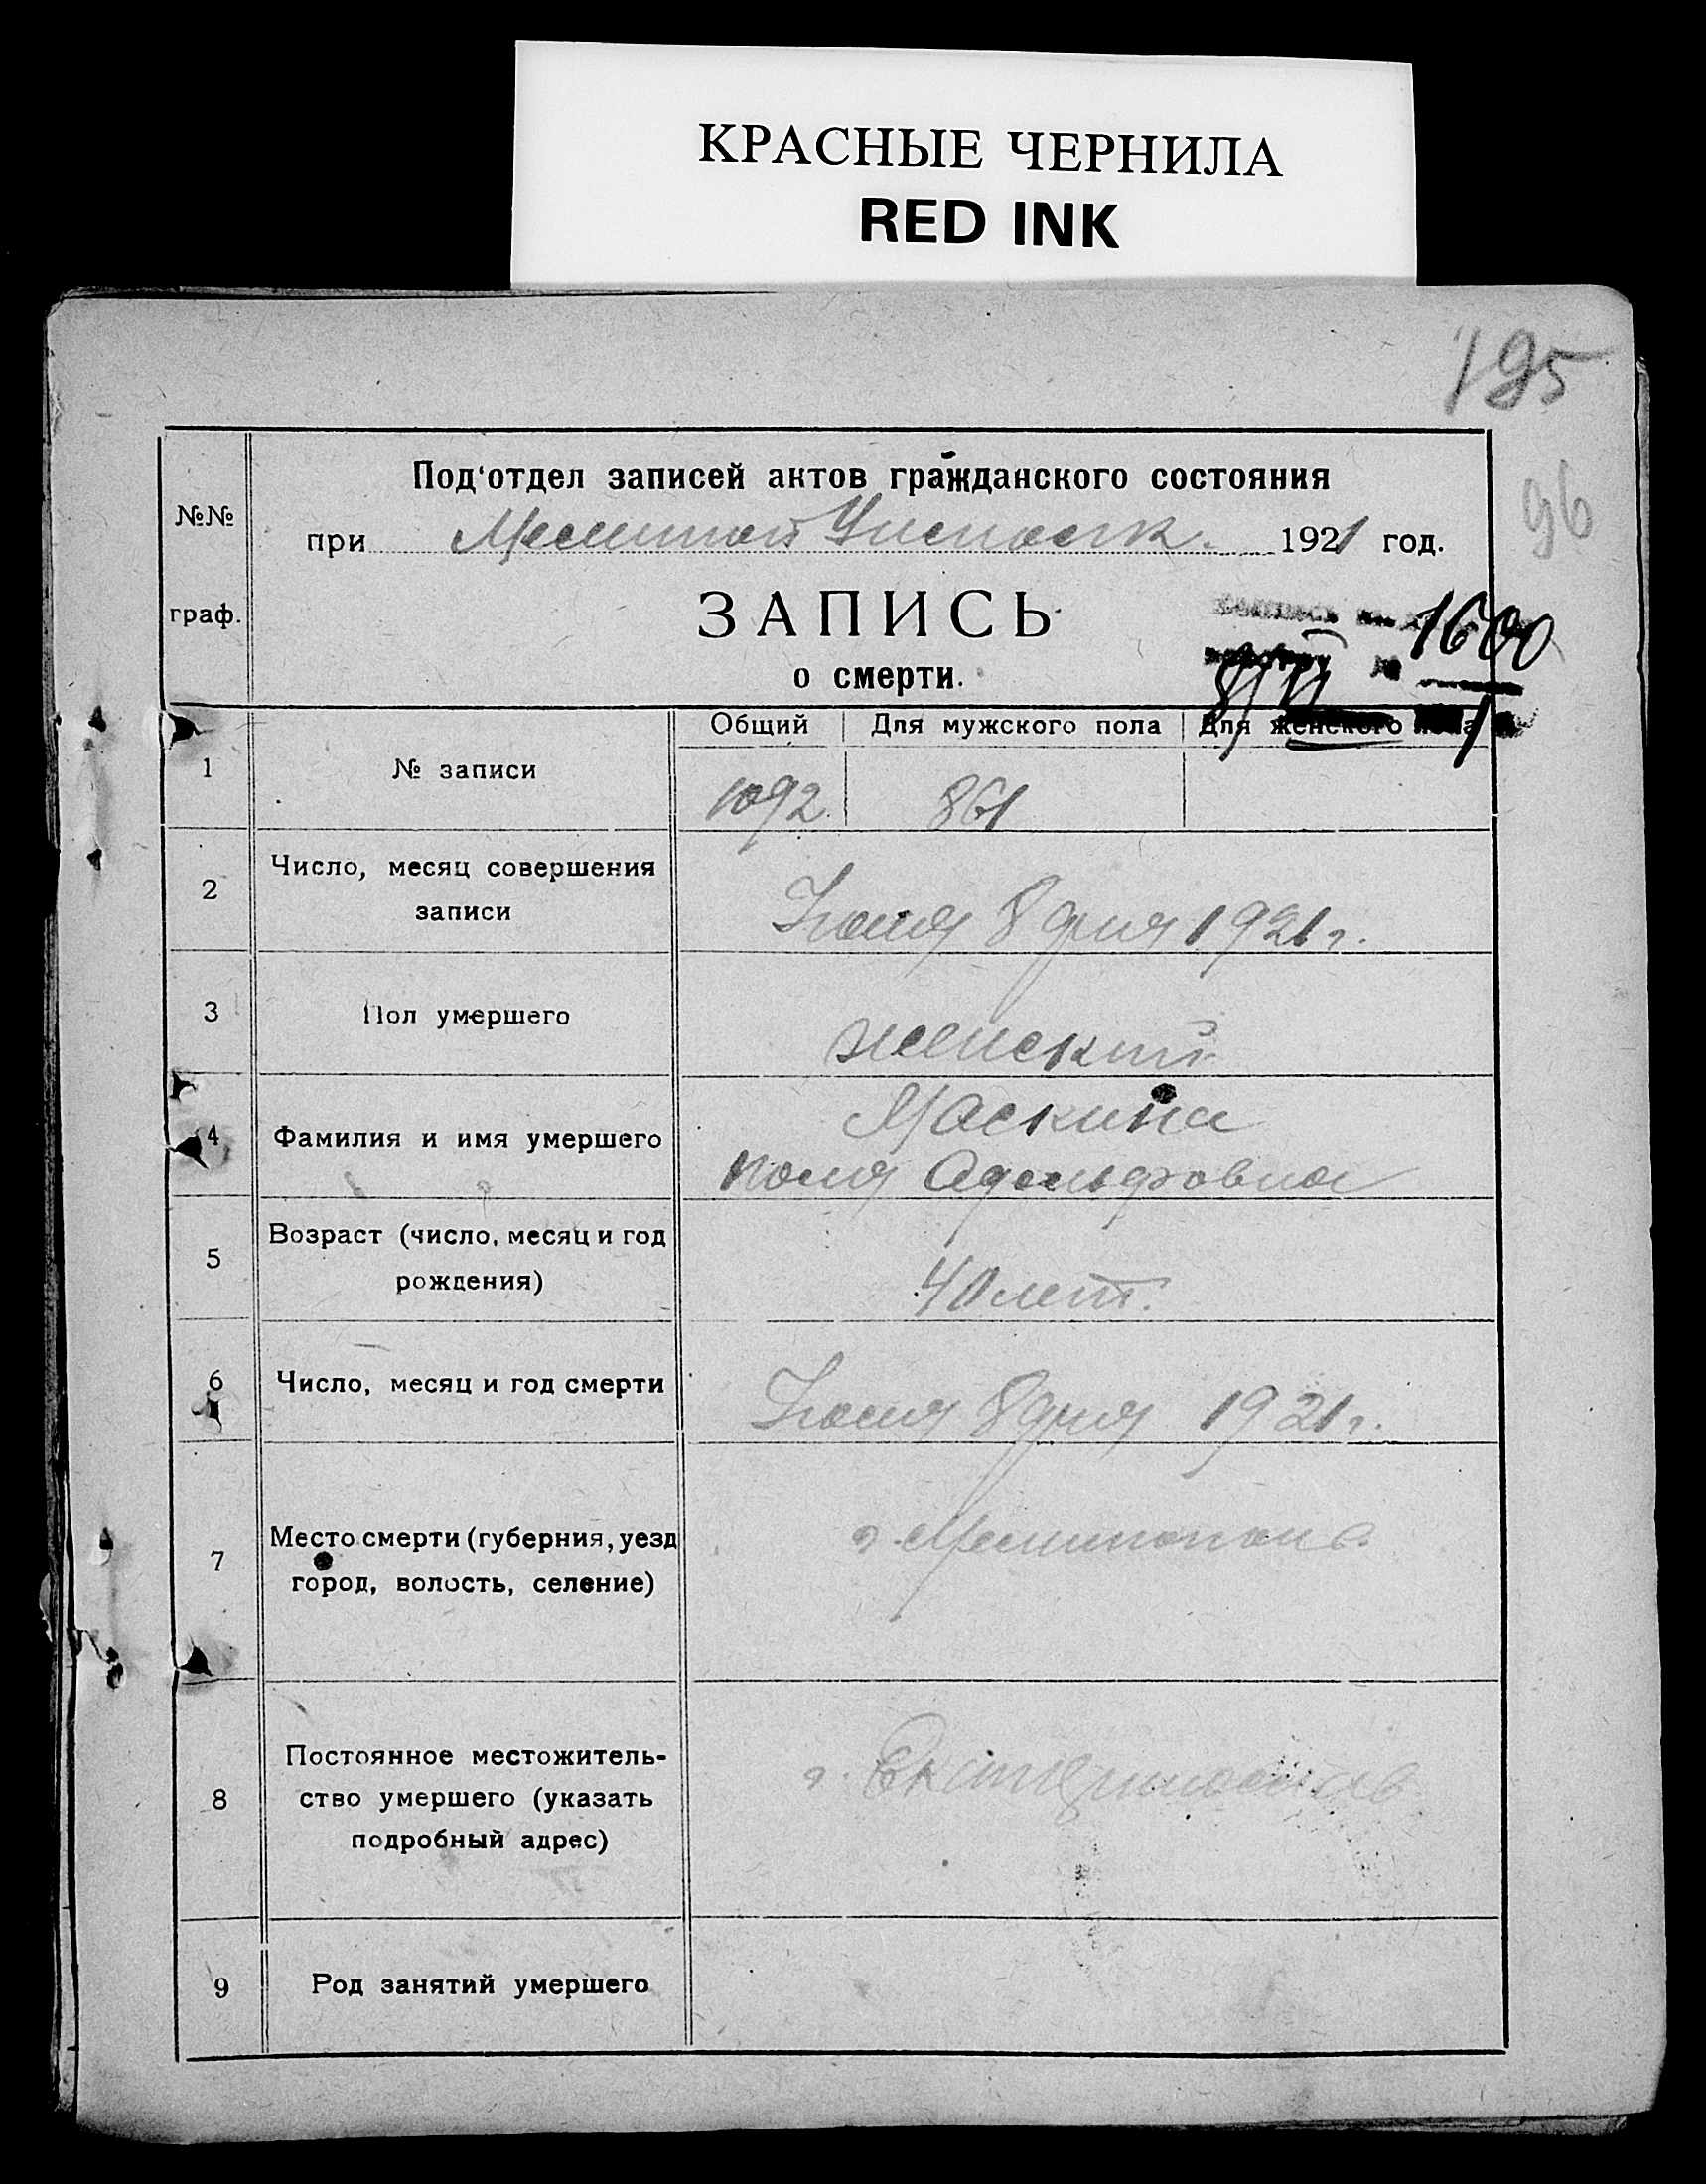 КРАСНЫЕ ЧЕРНИЛА
RED INK
195
96
Под'отдел записей актов гражданского состояния
№№
граф.
при Мелитоп Уисполк. 1921 год.
ЗАПИСЬ
о смерти.
1600
Общий Для мужского пола Для женского пола
1 № записи 1092 861
2 Число, месяц совершения
записи
Июня 8 дня 1921 г.
3 Пол умершего женский
4 Фамилия и имя умершего
Маскина
Поля Адольфовна
5 Возраст (число, месяц и год
рождения)
40 лет.
6 Число, месяц и год смерти Июня 8 дня 1921 г.
7 Место смерти (губерния, уезд
город, волость, селение)
г. Мелитополь
8 Постоянное местожитель-
ство умершего (указать
подробный адрес)
г. Екатеринослав
9 Род занятий умершего